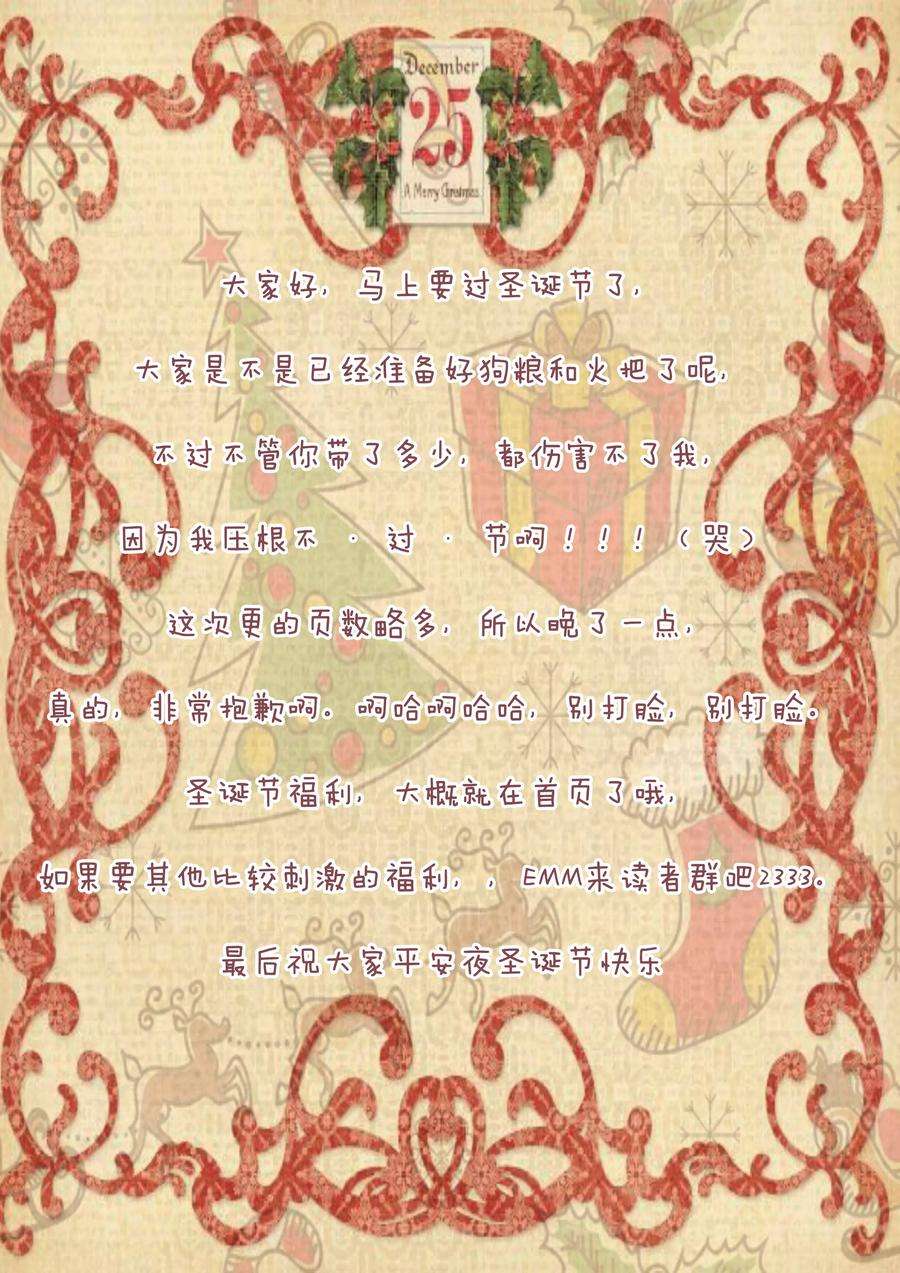 December
25
A Merry Christmas
大家好，马上要过圣诞节了，
大家是不是已经准备好狗粮和火把了呢，
不过不管你带了多少，都伤害不了我，
因为我压根不 · 过 · 节啊！！！（哭）
这次更的页数略多，所以晚了一点，
真的，非常抱歉啊。啊哈啊哈哈，别打脸，别打脸。
圣诞节福利，大概就在首页了哦，
如果要其他比较刺激的福利，，EMM来读者群吧2333。
最后祝大家平安夜圣诞节快乐